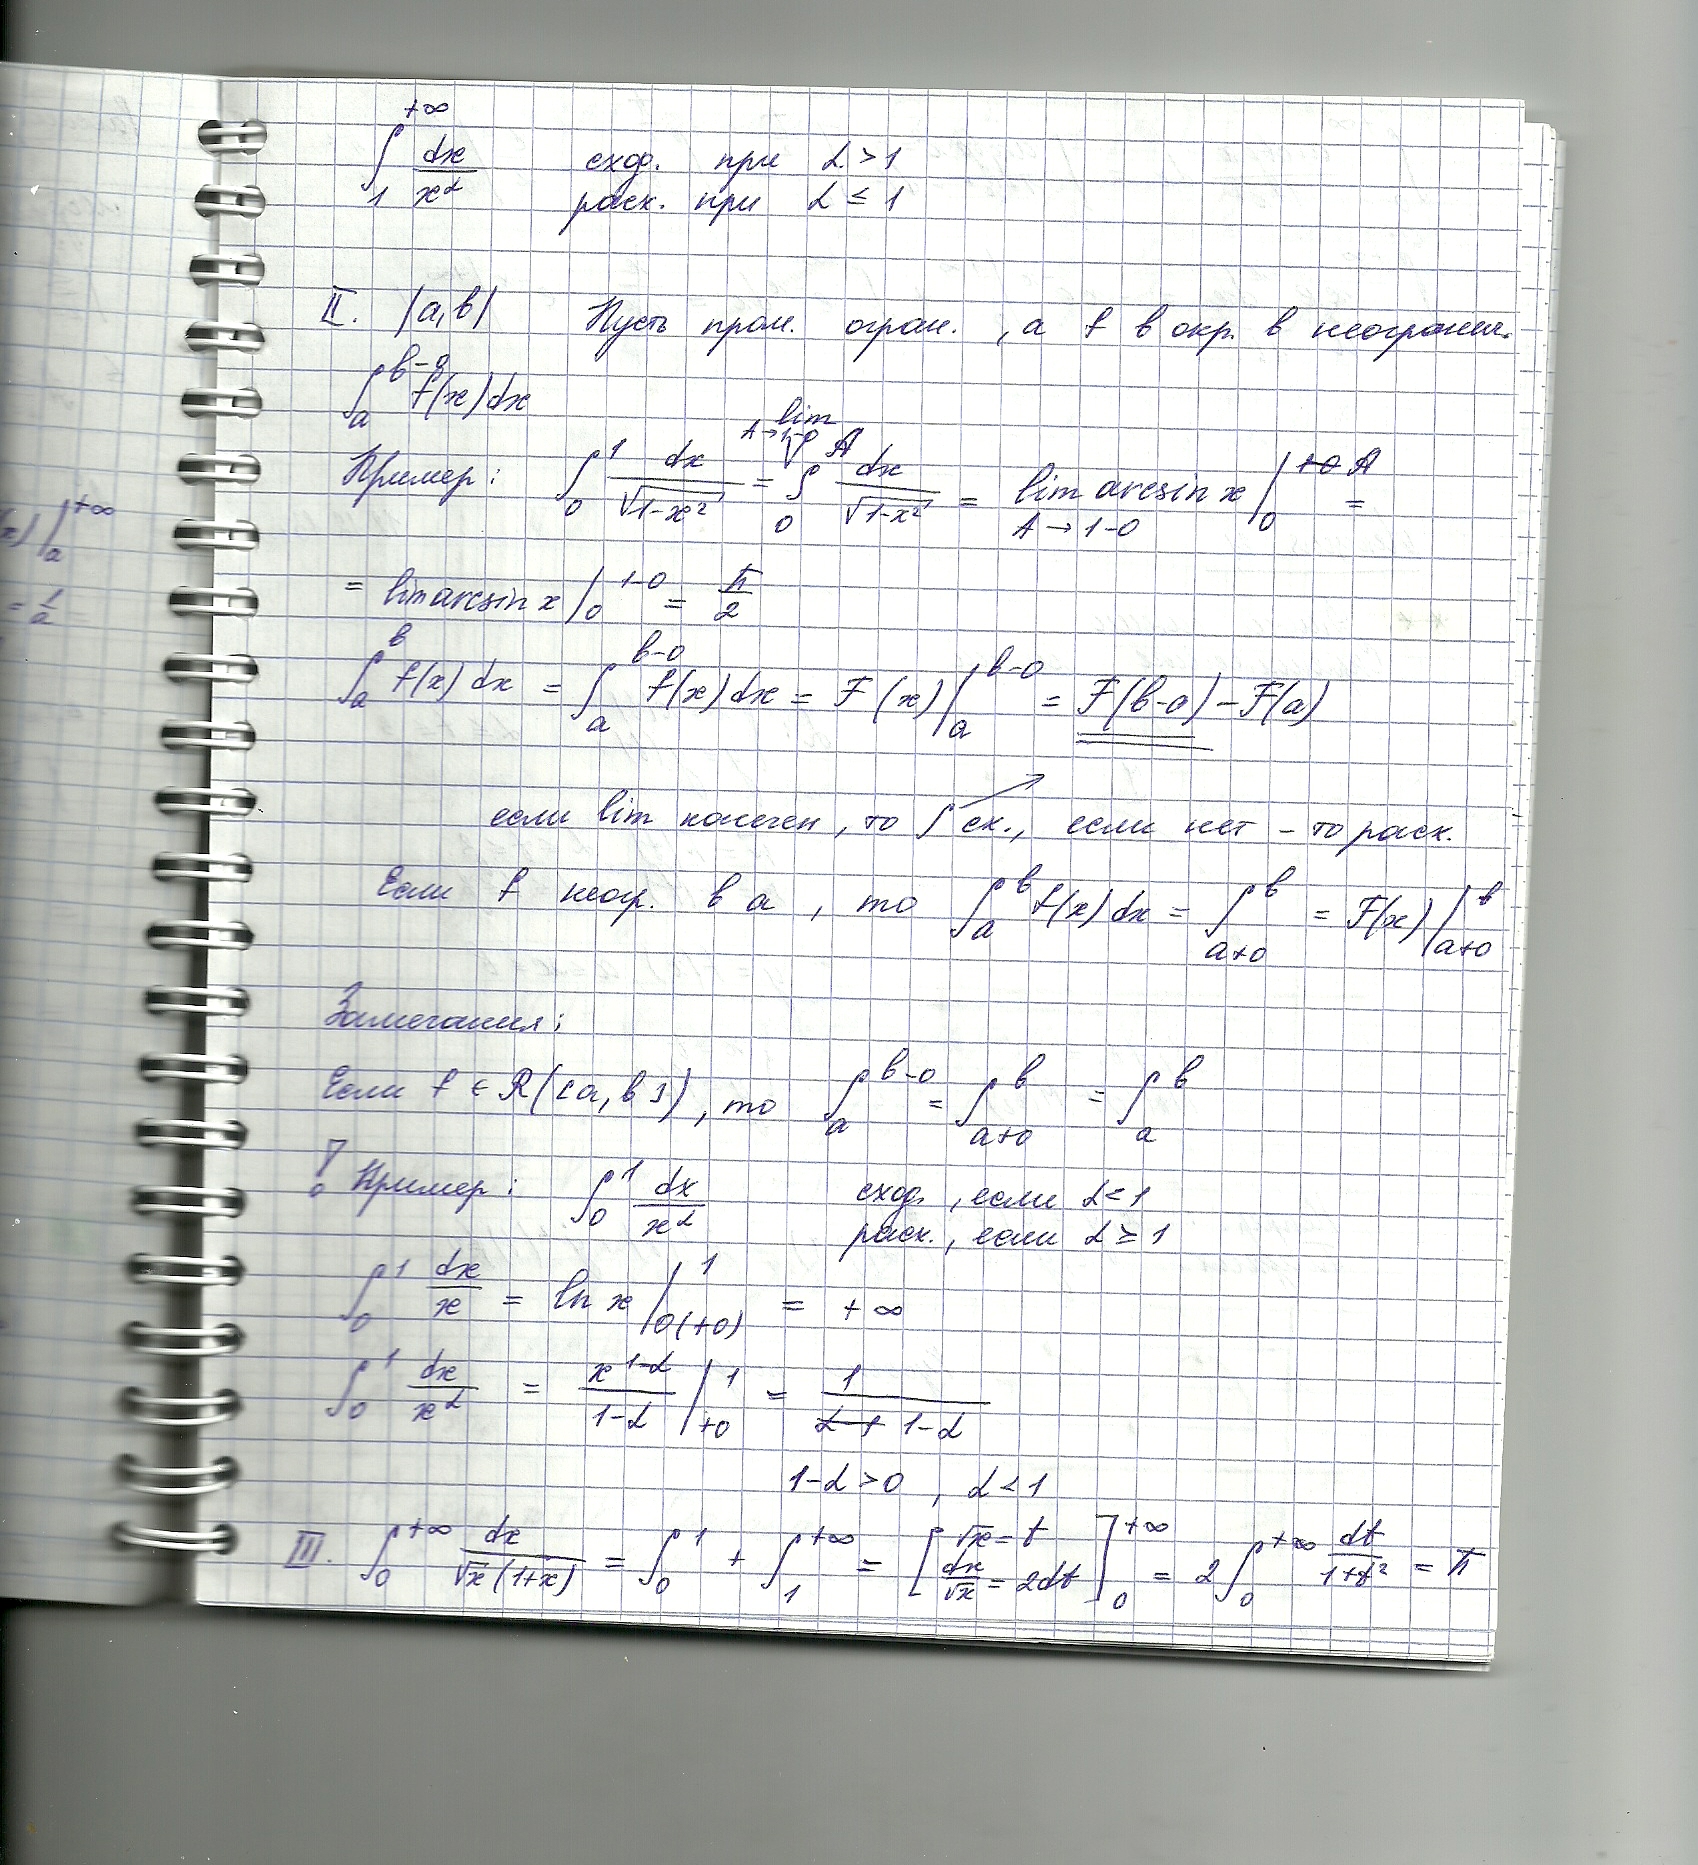 ∫₁^{+∞} dx/x^α   сход. при α > 1
расх. при α ≤ 1
II. |a, b|   Пусть пром. огран., а f в окр. b неогранич.
∫_a^{b-0} f(x)dx
Пример: ∫₀¹ dx/√(1-x²) = lim_{A→1-0} ∫₀^A dx/√(1-x²) = lim_{A→1-0} arcsin x |₀^A =
= lim arcsin x |₀^{1-0} = π/2
∫_a^b f(x) dx = ∫_a^{b-0} f(x) dx = F(x) |_a^{b-0} = F(b-0) - F(a)
если lim конечен, то ∫ сх., если нет - то расх.
Если f неогр. в a, то ∫_a^b f(x) dx = ∫_{a+0}^b = F(x) |_{a+0}^b
Замечания:
Если f ∈ R([a, b]), то ∫_a^{b-0} = ∫_{a+0}^b = ∫_a^b
! Пример: ∫₀¹ dx/x^α   сход., если α < 1
расх., если α ≥ 1
∫₀¹ dx/x = ln x |_{0(+0)}^1 = +∞
∫₀¹ dx/x^α = x^{1-α}/(1-α) |_{+0}^1 = 1/(1-α)
1-α > 0, α < 1
III. ∫₀^{+∞} dx/(√x(1+x)) = ∫₀¹ + ∫₁^{+∞} = [√x = t, dx/√x = 2dt]₀^{+∞} = 2∫₀^{+∞} dt/(1+t²) = π